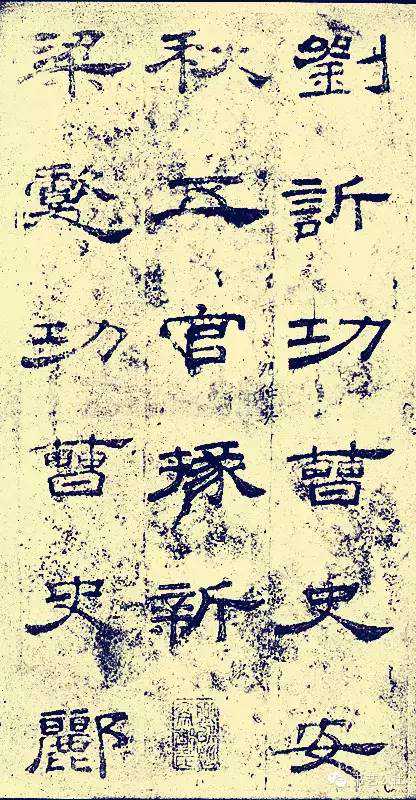 劉訢功曹史安
秋五官掾新
梁功曹史酈